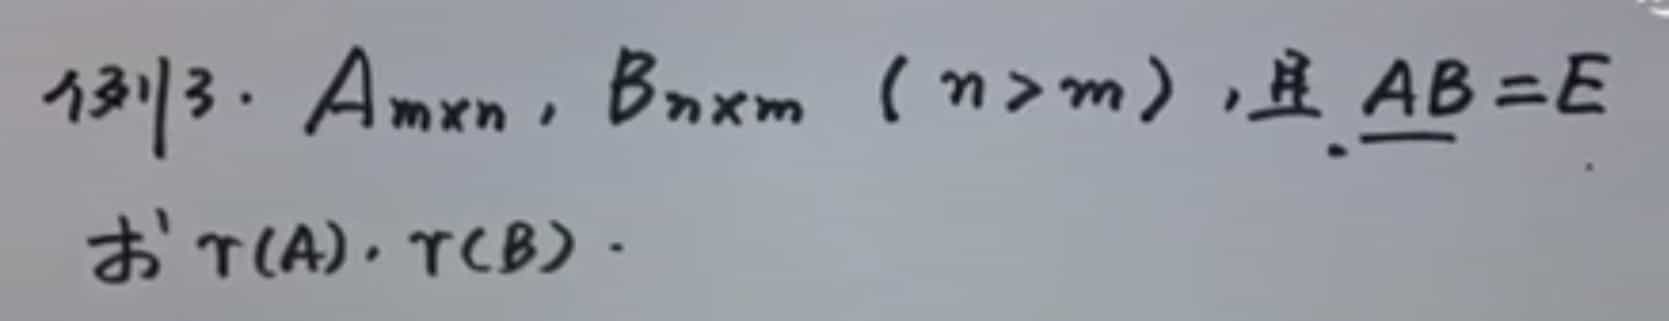 例3. A_{m×n}, B_{n×m} (n>m), 且 AB=E
求 r(A), r(B).